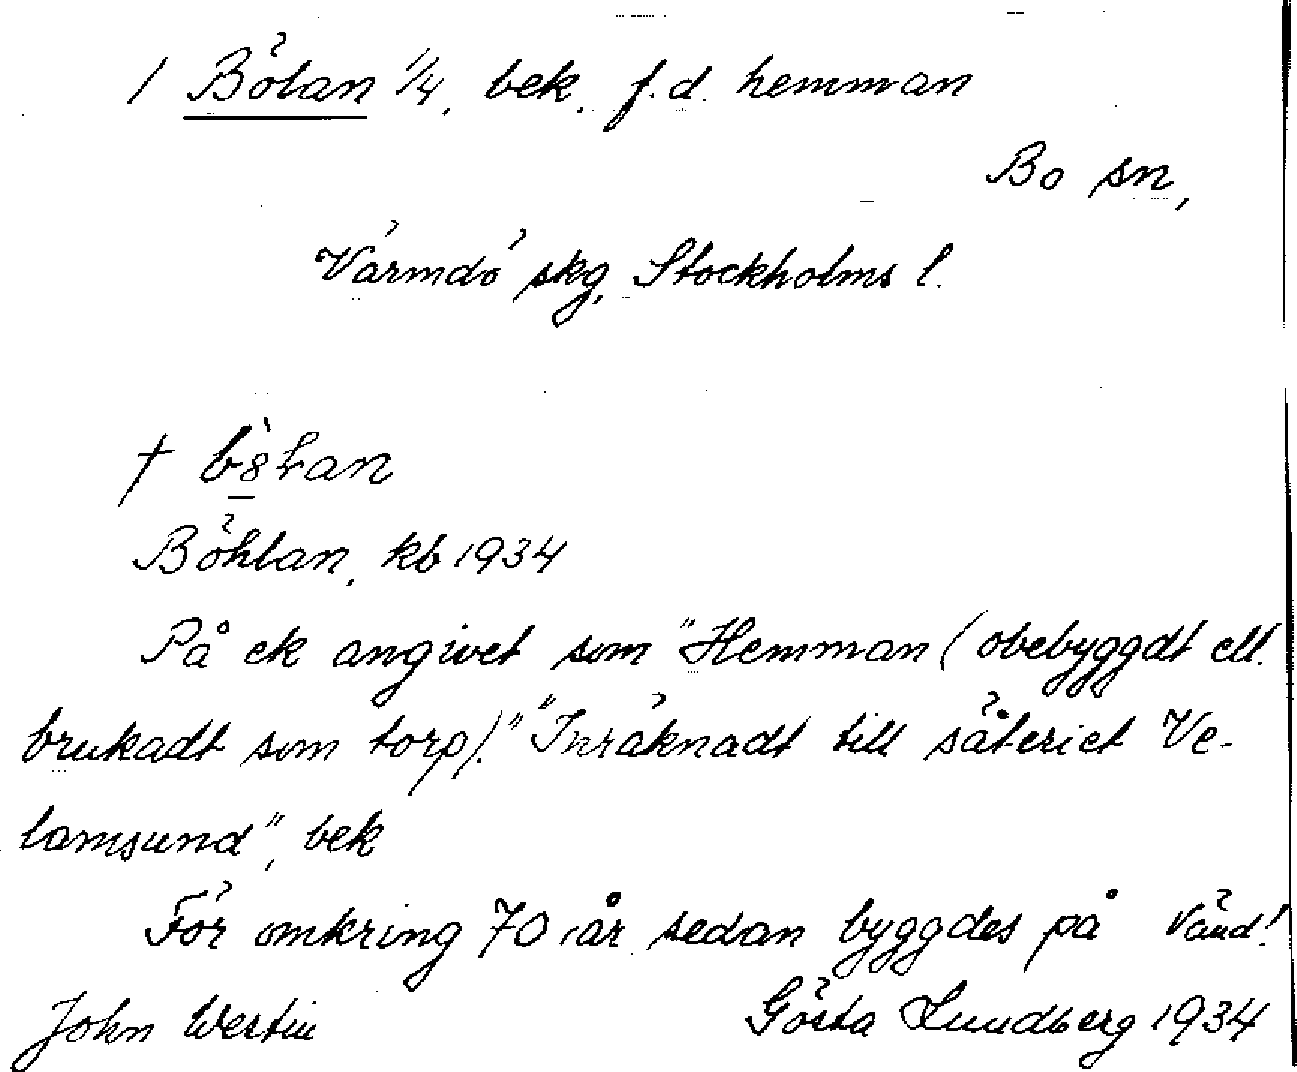 / Bölan 1/4, bek. f.d. hemman
Bo sn,
Värmdö skg, Stockholms l.
† bölan
Böhlan, kb 1934
På ek angivet som "Hemman (obebyggdt ell.
brukadt som torp)." "Inräknadt till säteriet Ve-
lamsund", bek
För omkring 70 år sedan byggdes på Vänd!
John Wertin Gösta Lundberg 1934